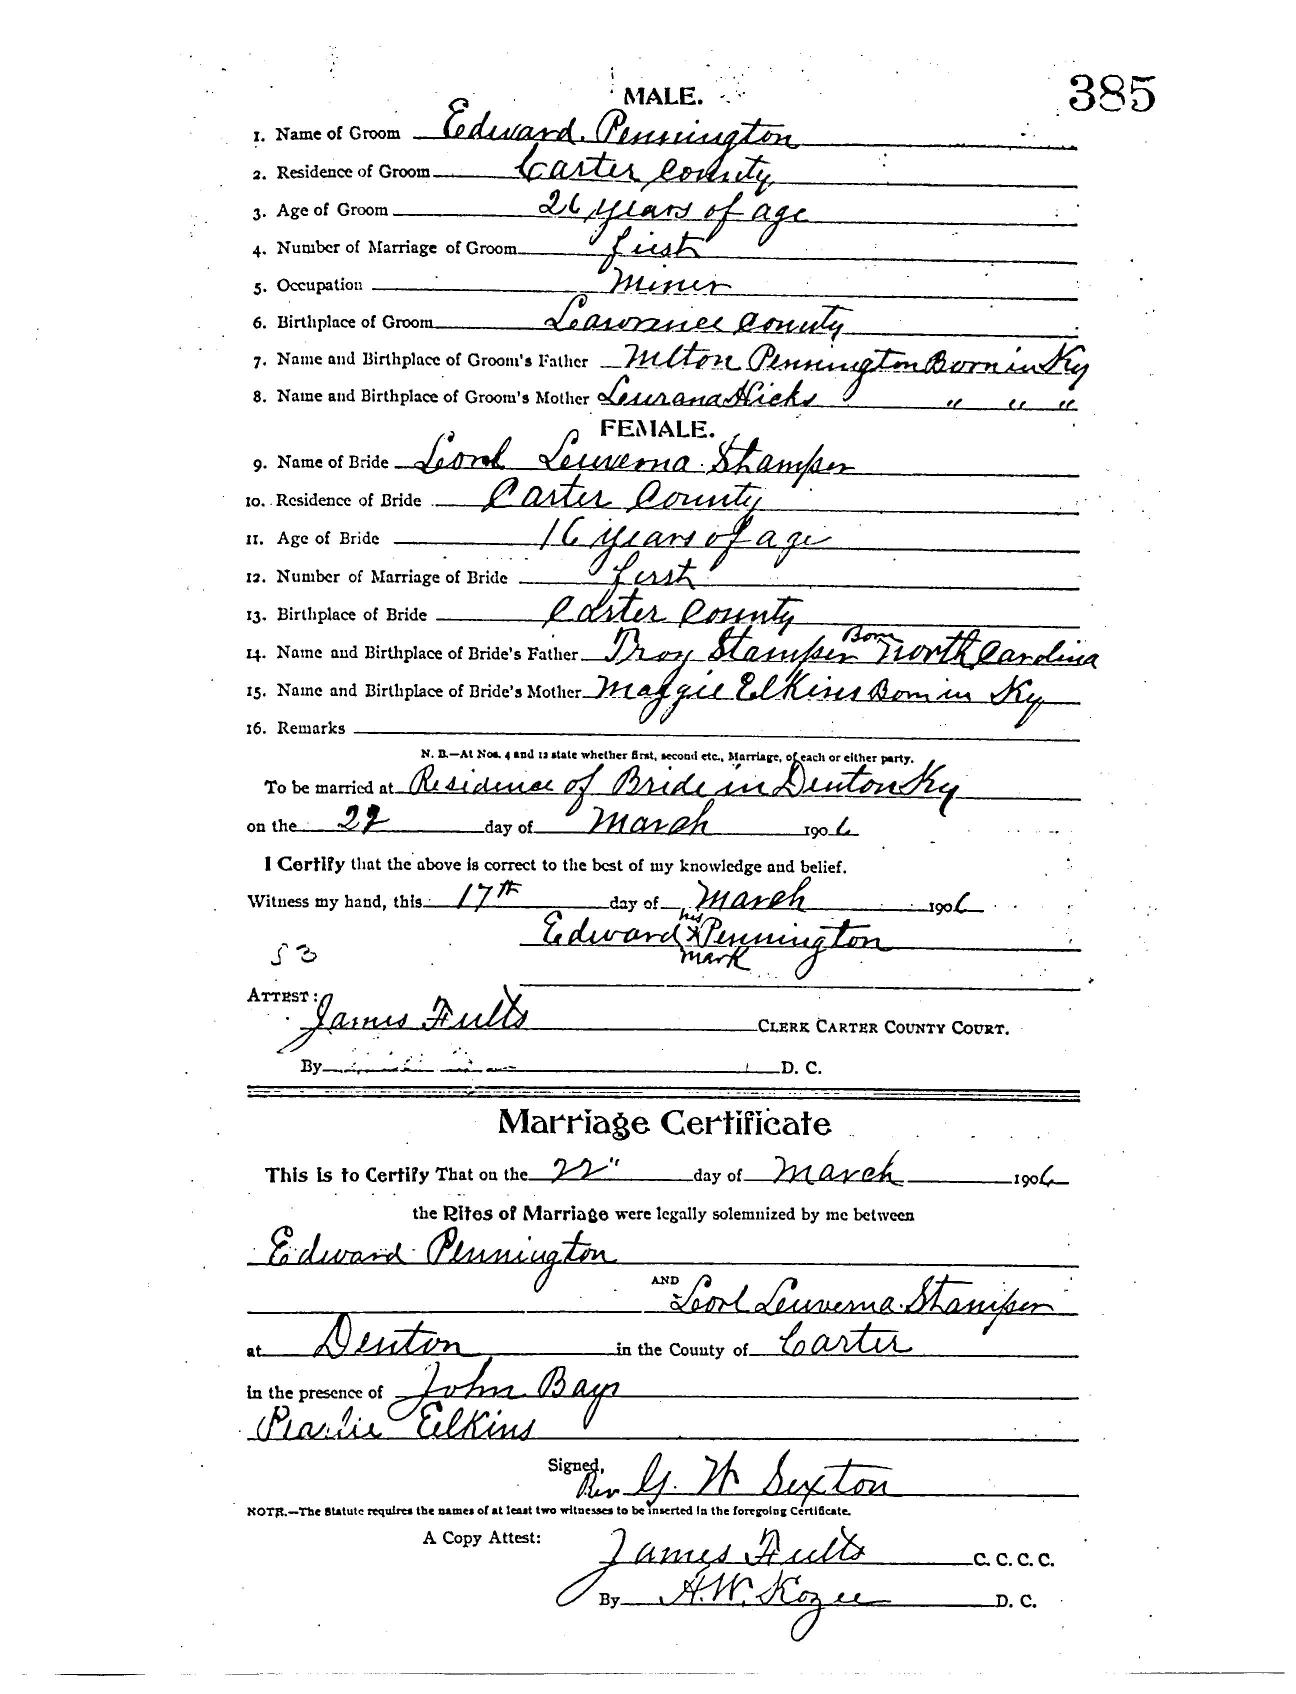 385
MALE.
1. Name of Groom Edward Pennington
2. Residence of Groom Carter County
3. Age of Groom 26 years of age
4. Number of Marriage of Groom first
5. Occupation Miner
6. Birthplace of Groom Lawrence County
7. Name and Birthplace of Groom's Father Milton Pennington Born in Ky
8. Name and Birthplace of Groom's Mother Leurana Hicks " " "
FEMALE.
9. Name of Bride Leorl Leuverna Stamper
10. Residence of Bride Carter County
11. Age of Bride 16 years of age
12. Number of Marriage of Bride first
13. Birthplace of Bride Carter County
14. Name and Birthplace of Bride's Father Troy Stamper Born North Carolina
15. Name and Birthplace of Bride's Mother Maggie Elkins Born in Ky
16. Remarks
N. B.—At Nos. 4 and 12 state whether first, second etc., Marriage, of each or either party.
To be married at Residence of Bride in Denton Ky
on the 22 day of March 1906
I Certify that the above is correct to the best of my knowledge and belief.
Witness my hand, this 17th day of March 1906
Edward his x mark Pennington
53
ATTEST:
James Fults CLERK CARTER COUNTY COURT.
By D. C.
Marriage Certificate
This is to Certify That on the 22" day of March 1906
the Rites of Marriage were legally solemnized by me between
Edward Pennington
AND Leorl Leuverna Stamper
at Denton in the County of Carter
in the presence of John Bays
Pearlie Elkins
Signed, Rev G. W Sexton
NOTE.—The Statute requires the names of at least two witnesses to be inserted in the foregoing Certificate.
A Copy Attest:
James Fults C. C. C. C.
By A. W. Kozee D. C.